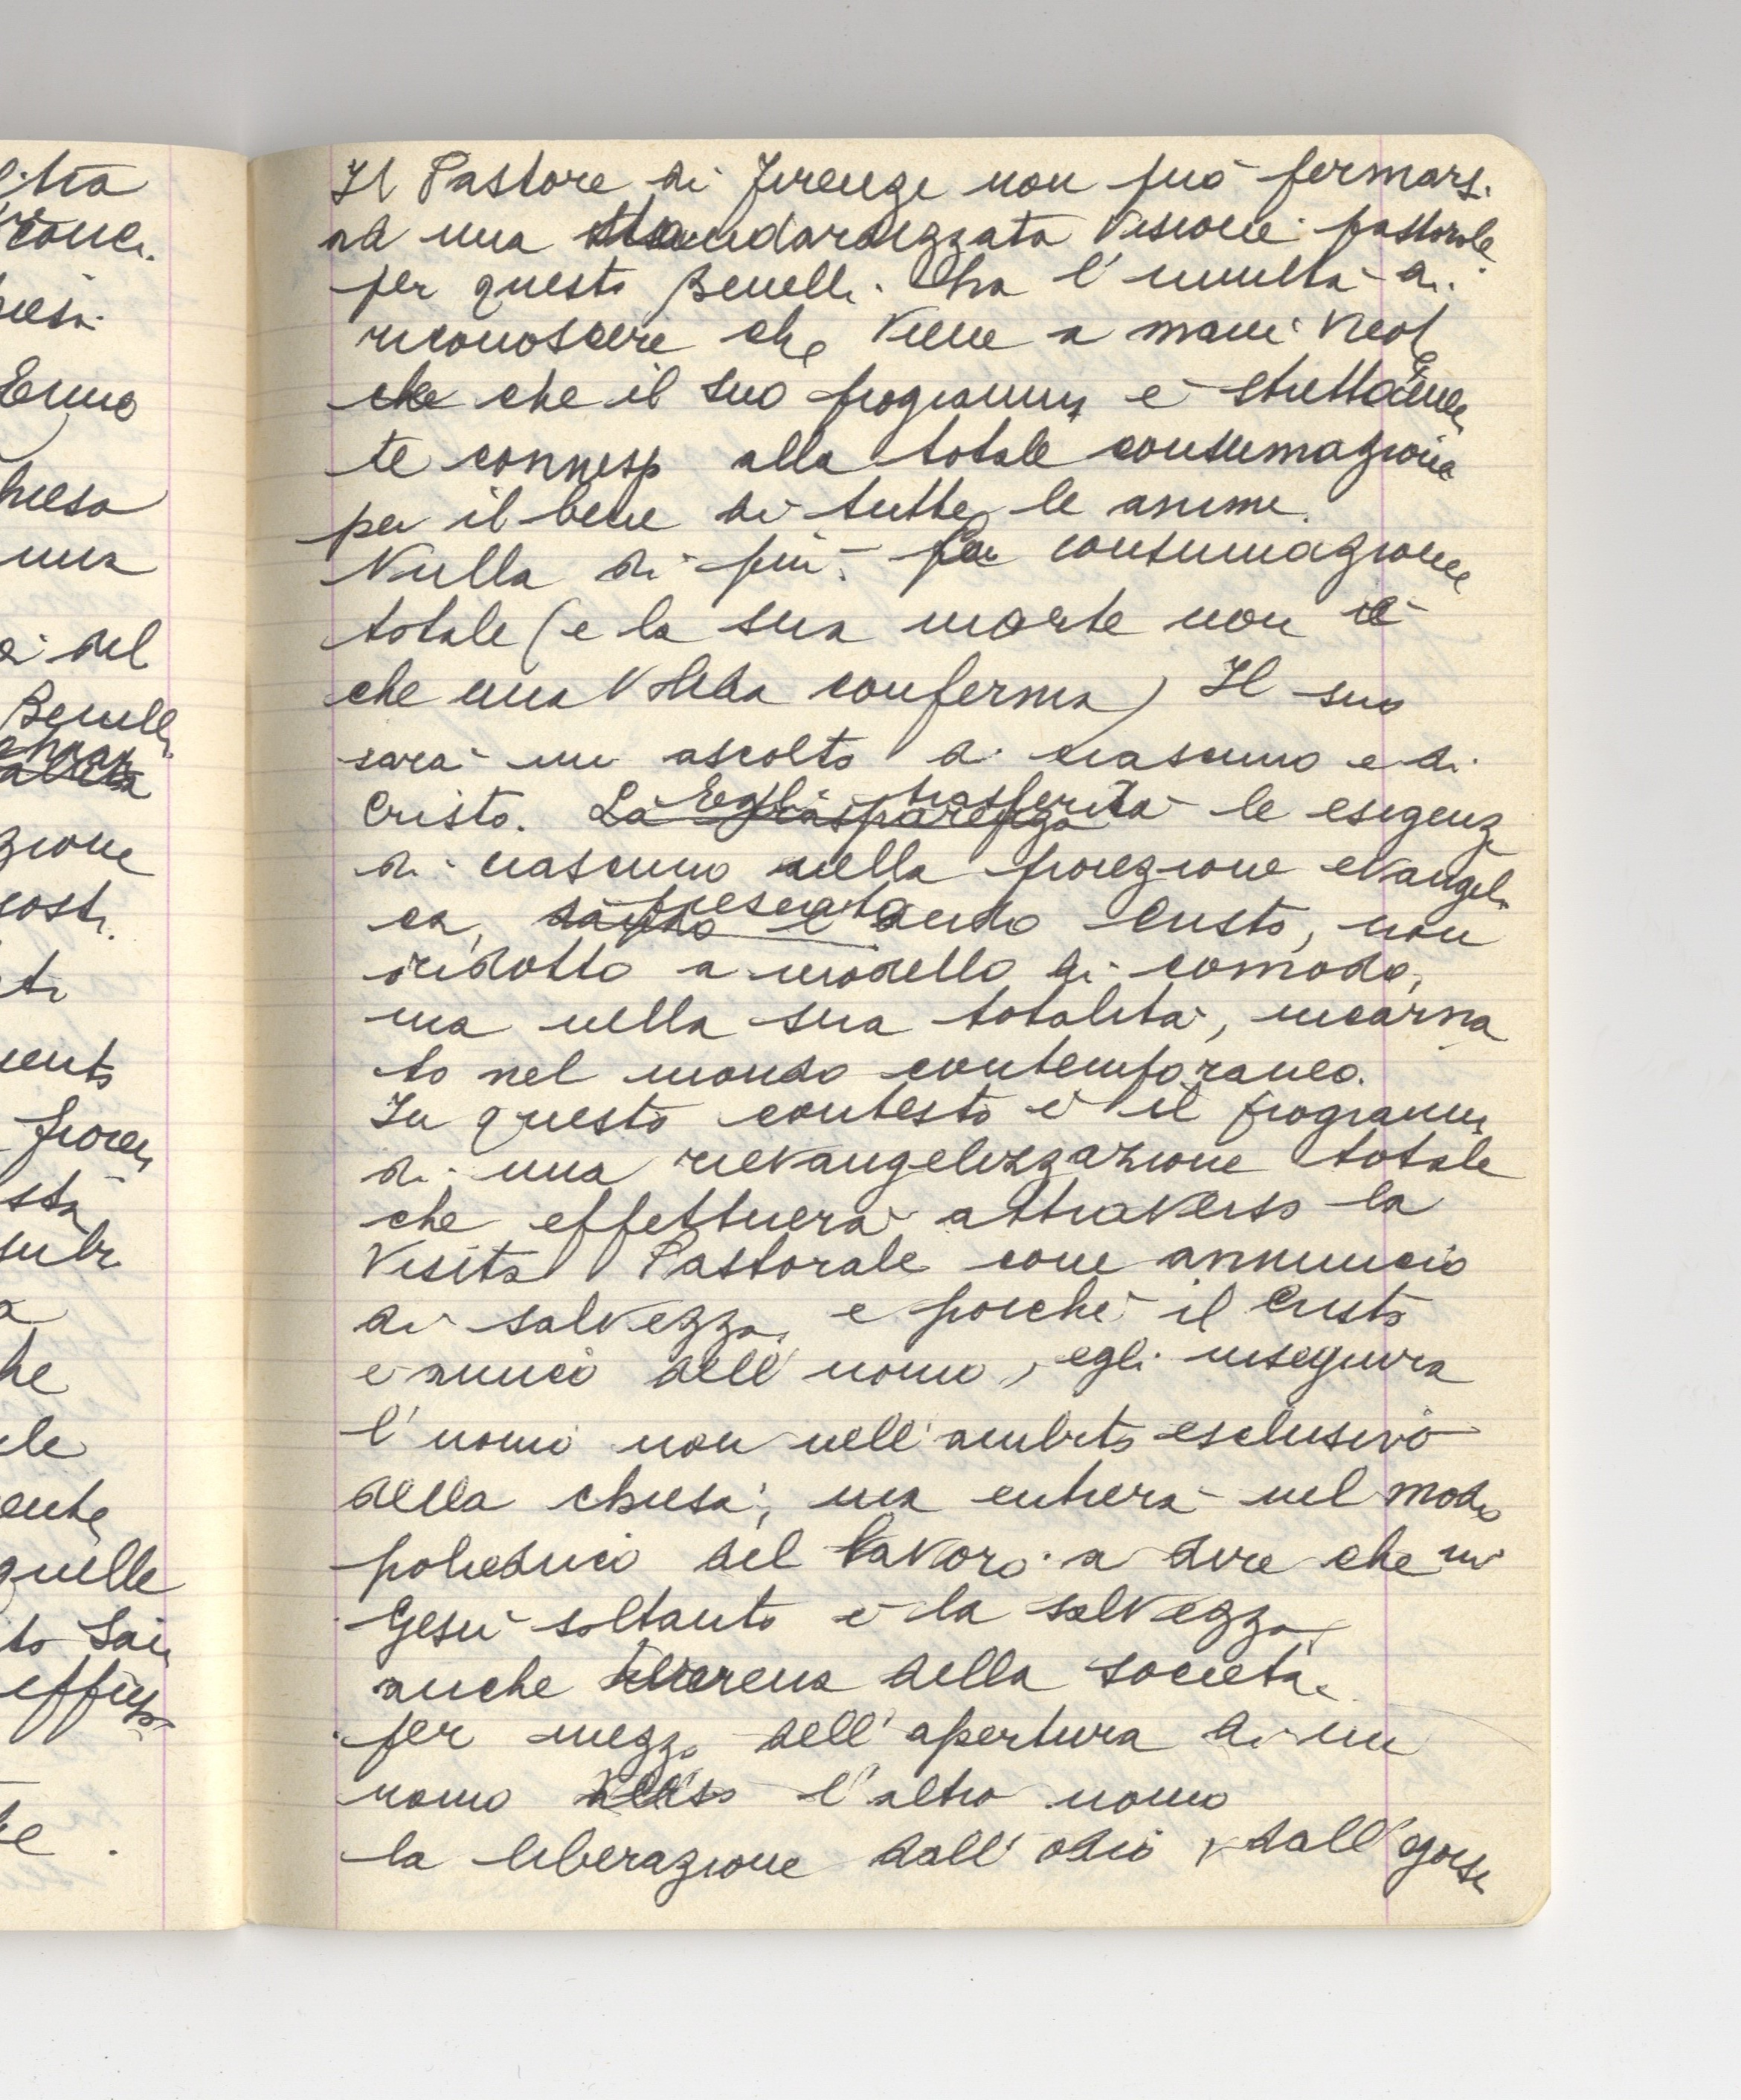 litrà
Benelli
zione
quelle
Il Pastore di Firenze non può fermarsi
ad una standardizzata visione pastorale
per questo Benelli ha l'umiltà di
riconoscere che viene a mani vuot
che che il suo programma è strettamen
te connesso alla totale consumazione
per il bene di tutte le anime.
Nulla di più: la consumazione
totale (e la sua morte non è
che una conferma) Il suo
sarà un ascolto di ciascuno e di
Cristo. La trasparenza Egli trasferirà le esigenze
di ciascuno nella proiezione evangeli
ca, dando e presentando Cristo, non
ridotto a modello di comodo,
ma nella sua totalità, incarna
to nel mondo contemporaneo.
In questo contesto è il programma
di una rievangelizzazione totale
che effettuerà attraverso la
Visita Pastorale come annuncio
di salvezza, e poiché il Cristo
è amico dell'uomo, egli inseguirà
l'uomo non nell'ambito esclusivo
della chiesa; ma entrerà nel modo
poliedrico del lavoro a dire che in
Gesù soltanto è la salvezza,
anche terrena della società.
per mezzo dell'apertura di un
uomo verso l'altro uomo
la liberazione dall'odio, dall'egois